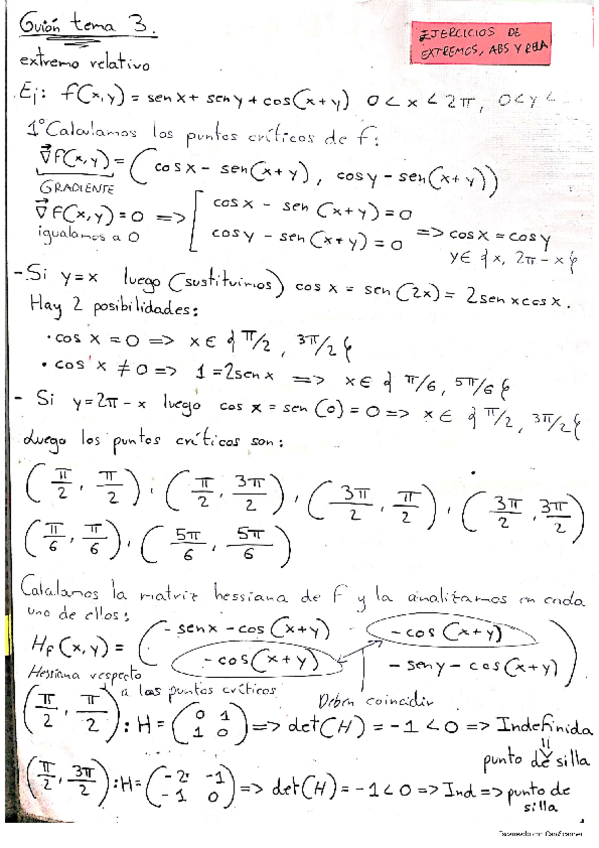 Guión tema 3.
EJERCICIOS DE
EXTREMOS, ABS Y RELA
extremo relativo
Ej: f(x,y) = senx + seny + cos(x+y) 0 < x < 2π, 0 < y <
1º Calculamos los puntos críticos de f:
∇f(x,y) = (cosx - sen(x+y), cosy - sen(x+y))
GRADIENTE
∇f(x,y) = 0 => [ cosx - sen(x+y) = 0
igualamos a 0
cosy - sen(x+y) = 0 => cosx = cosy
y ∈ {x, 2π - x}
- Si y=x luego (sustituimos) cosx = sen(2x) = 2senxcosx.
Hay 2 posibilidades:
• cos x = 0 => x ∈ {π/2, 3π/2}
• cos x ≠ 0 => 1 = 2senx => x ∈ {π/6, 5π/6}
- Si y=2π-x luego cosx = sen(0) = 0 => x ∈ {π/2, 3π/2}
Luego los puntos críticos son:
(π/2, π/2), (π/2, 3π/2), (3π/2, π/2), (3π/2, 3π/2)
(π/6, π/6), (5π/6, 5π/6)
Calculamos la matriz hessiana de f y la analizamos en cada
uno de ellos:
Hf(x,y) = ( -senx-cos(x+y) -cos(x+y)
-cos(x+y) -seny-cos(x+y) )
Hessiana respecto
a los puntos críticos
Deben coincidir
(π/2, π/2): H = (0 1 1 0) => det(H) = -1 < 0 => Indefinida
punto de silla
(π/2, 3π/2): H = (-2 -1 -1 0) => det(H) = -1 < 0 => Ind => punto de
silla